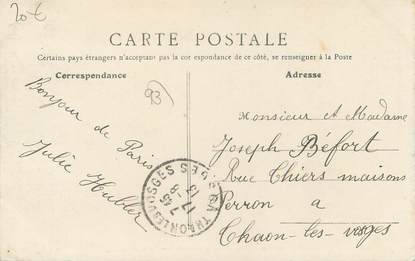 20€
CARTE POSTALE
Certains pays étrangers n'acceptant pas la correspondance de ce côté, se renseigner à la Poste
Correspondance
Adresse
93
Bonjour de Paris
Julie Hubler
Monsieur et Madame
Joseph Béfort
Rue Thiers maisons
Perron a
Thaon-les-vosges
THAON LES VOSGES